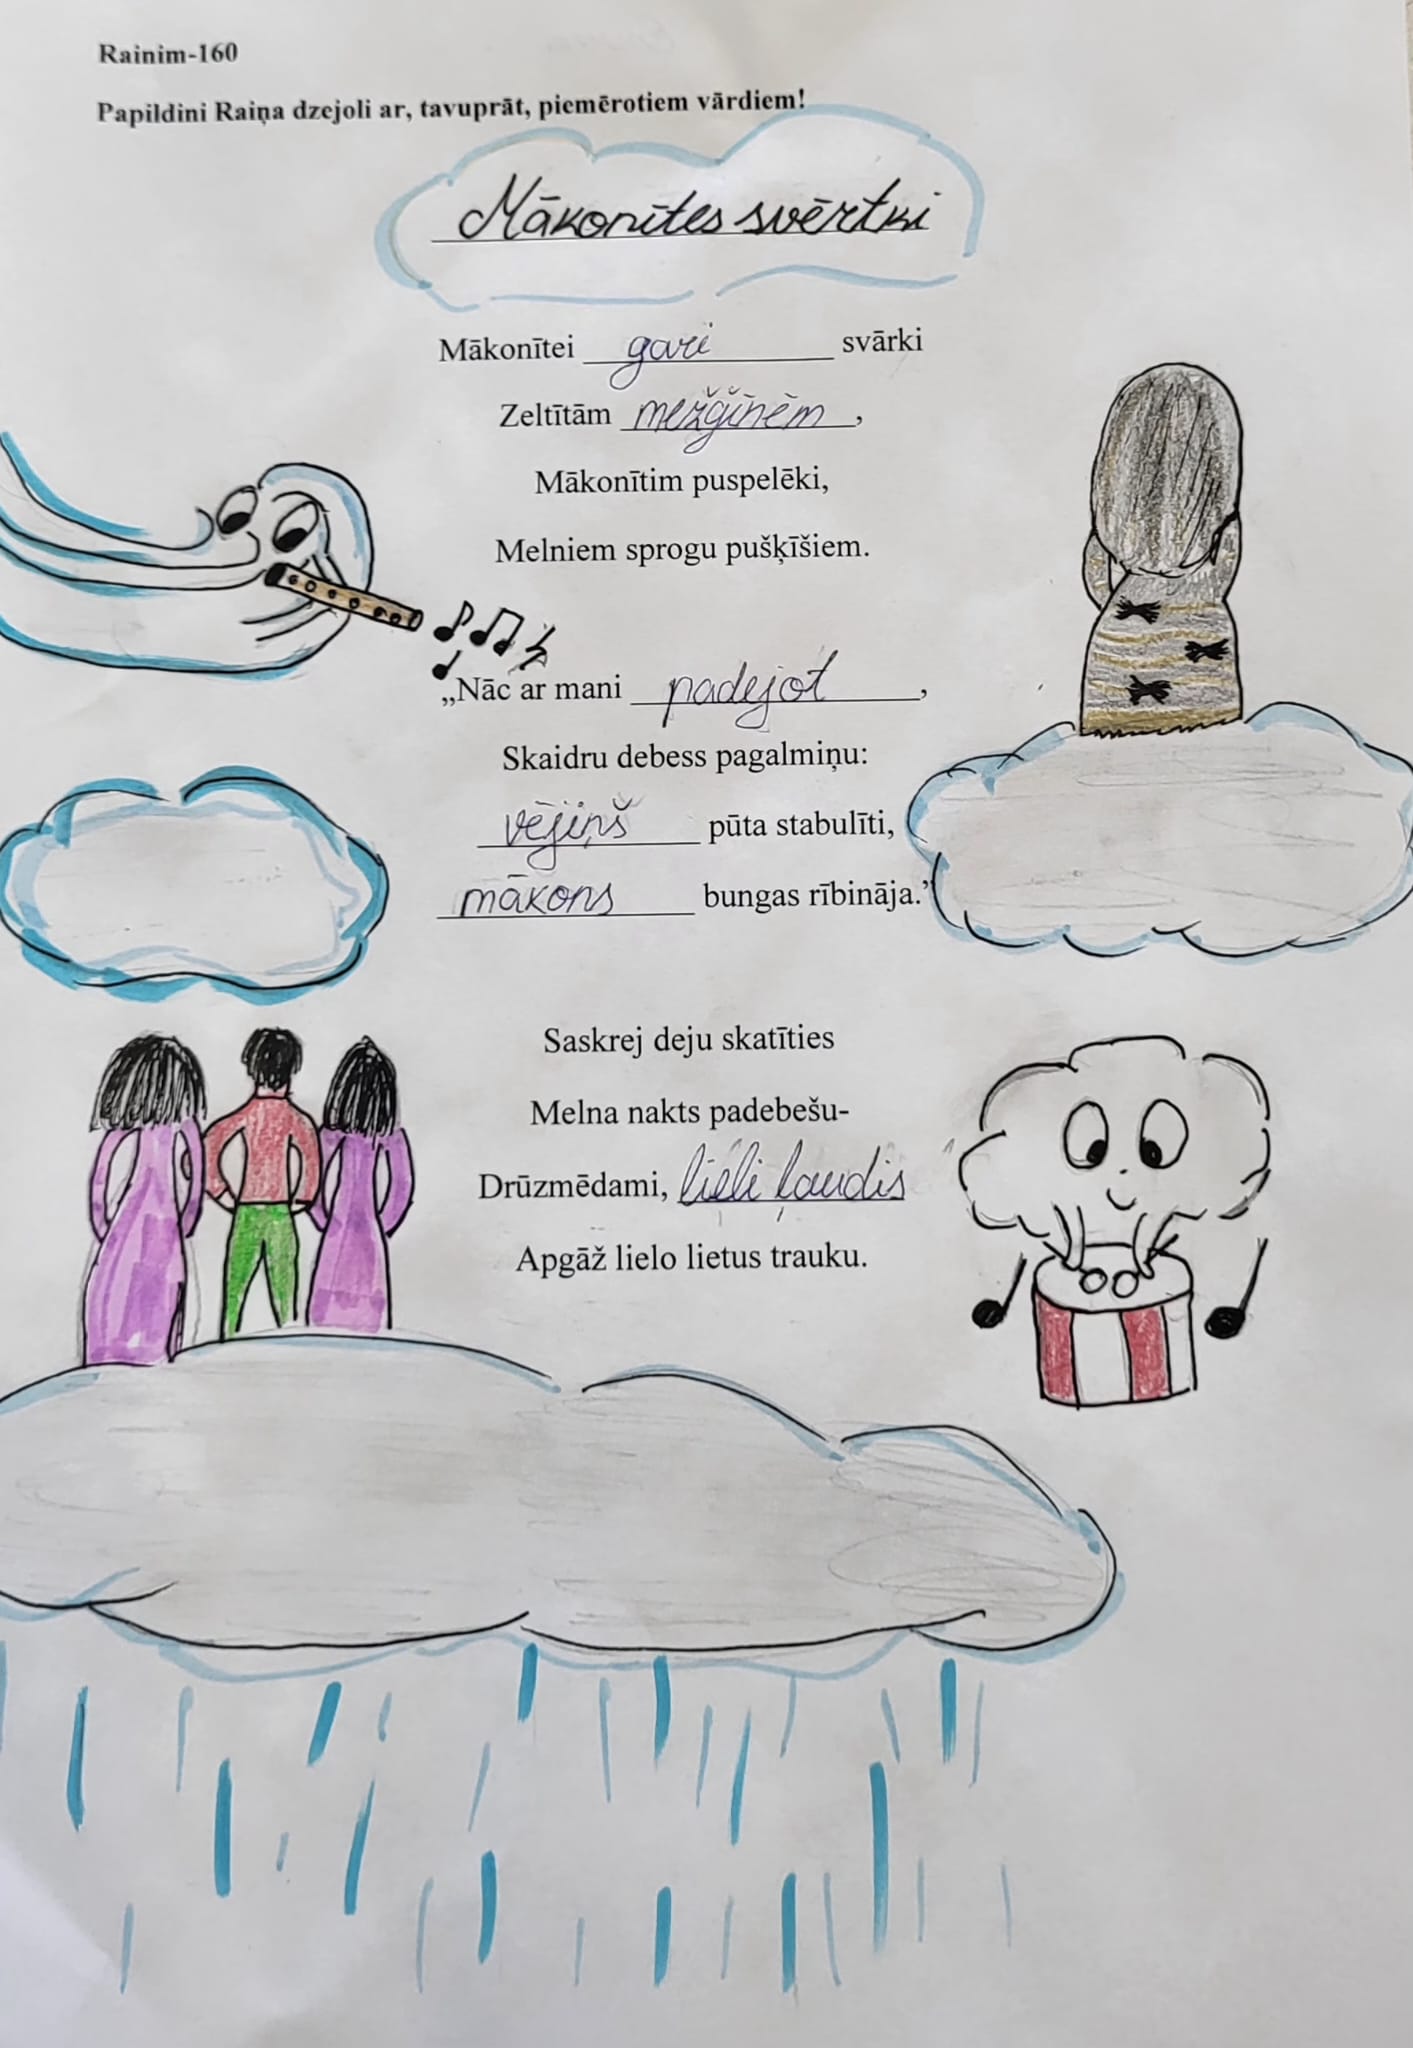 Rainim-160
Papildini Raiņa dzejoli ar, tavuprāt, piemērotiem vārdiem!
Mākonītes svērtki
Mākonītei gari svārki
Zeltītām mežģīnēm,
Mākonītim puspelēki,
Melniem sprogu pušķīšiem.
„Nāc ar mani padejot,
Skaidru debess pagalmiņu:
vējiņš pūta stabulīti,
mākons bungas rībināja.”
Saskrej deju skatīties
Melna nakts padebešu-
Drūzmēdami, lieli ļaudis
Apgāž lielo lietus trauku.